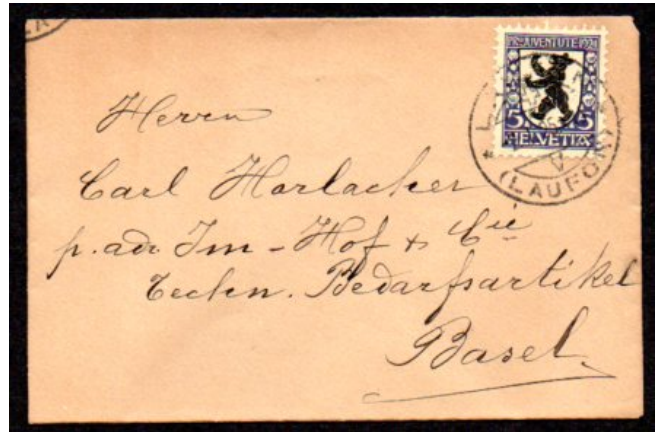 PRO JUVENTUTE 1924
5 5
HELVETIA
(LAUFON)
Herrn
Carl Horlacher
p. adr Im-Hof & Cie
Techn. Bedarfsartikel
Basel